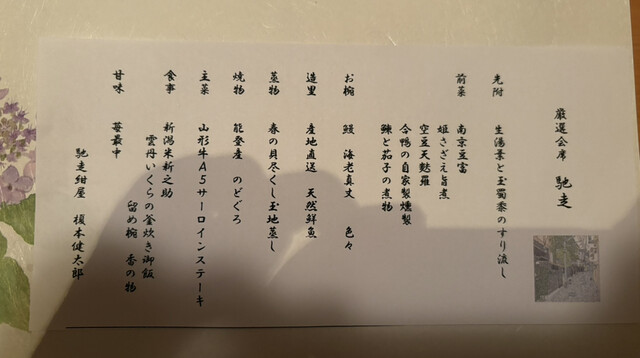 厳選会席 馳走
先附 生湯葉と玉蜀黍のすり流し
前菜 南京豆富
姫さざえ旨煮
空豆天麩羅
合鴨の自家製燻製
鰊と茄子の煮物
お椀 鰻 海老真丈 色々
造里 産地直送 天然鮮魚
蒸物 春の貝尽くし玉地蒸し
焼物 能登産 のどぐろ
主菜 山形牛A5サーロインステーキ
食事 新潟米新之助
雲丹いくらの釜炊き御飯
留め椀 香の物
甘味 苺最中
馳走紺屋 榎本健太郎